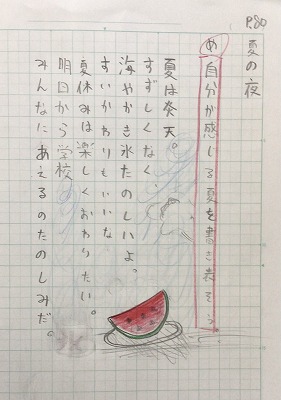 P.80
夏の夜
め 自分が感じる夏を書き表そう
夏は炎天。
すずしくなく
海やかき氷たのしいよ。
すいかわりもいいな
夏休みは楽しくおわりたい。
明日から学校
みんなにあえるのたのしみだ。